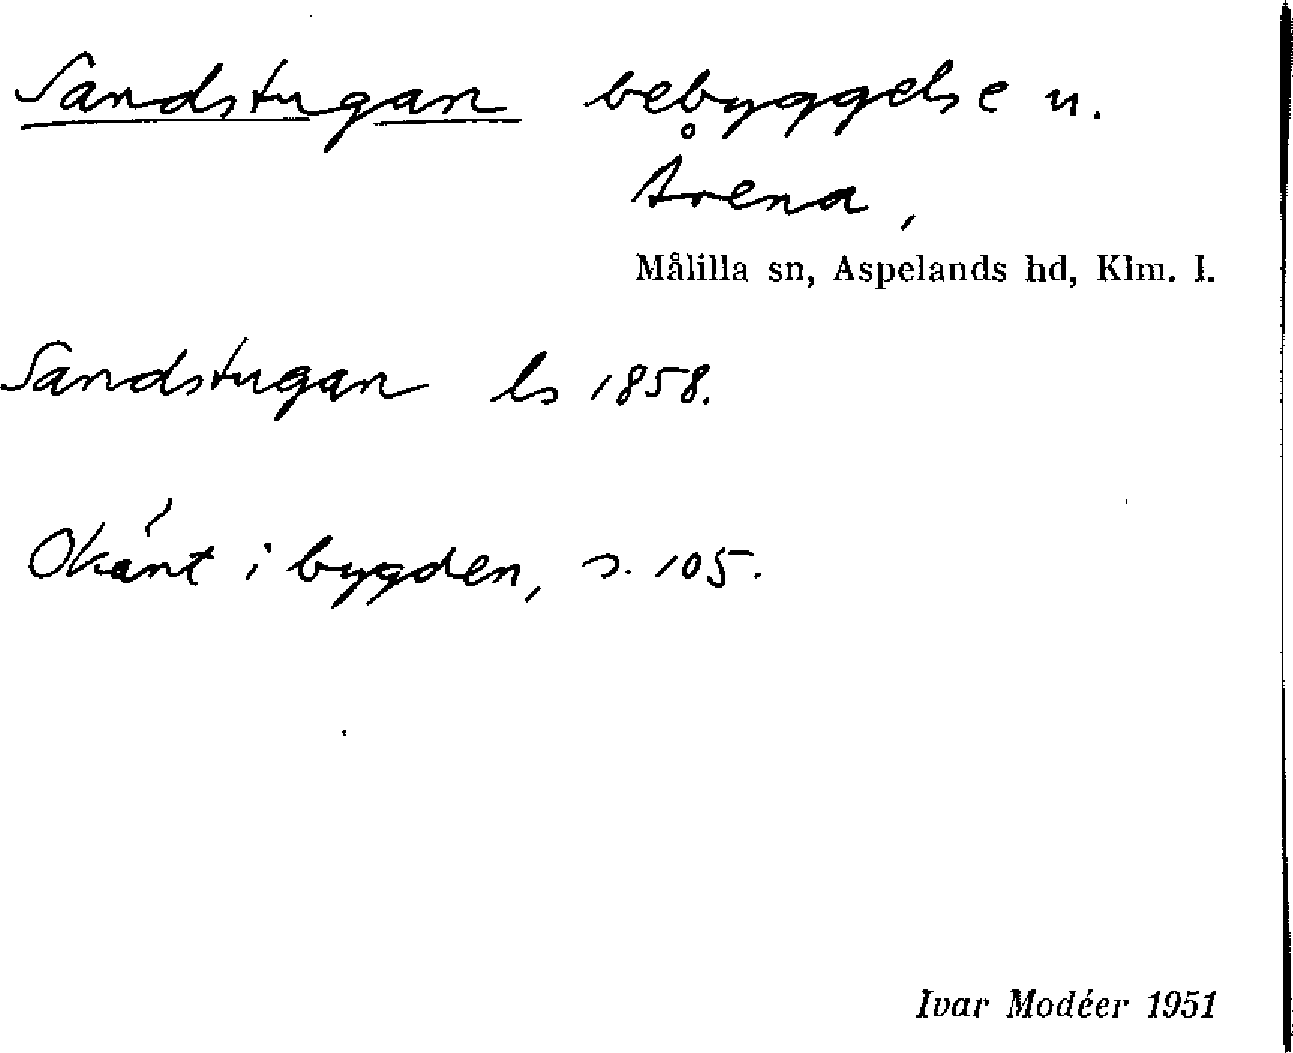 Sandstugan bebyggelse u.
Årena,
Målilla sn, Aspelands hd, Klm. l.
Sandstugan ls 1858.
Okänt i bygden, s. 105.
Ivar Modéer 1951